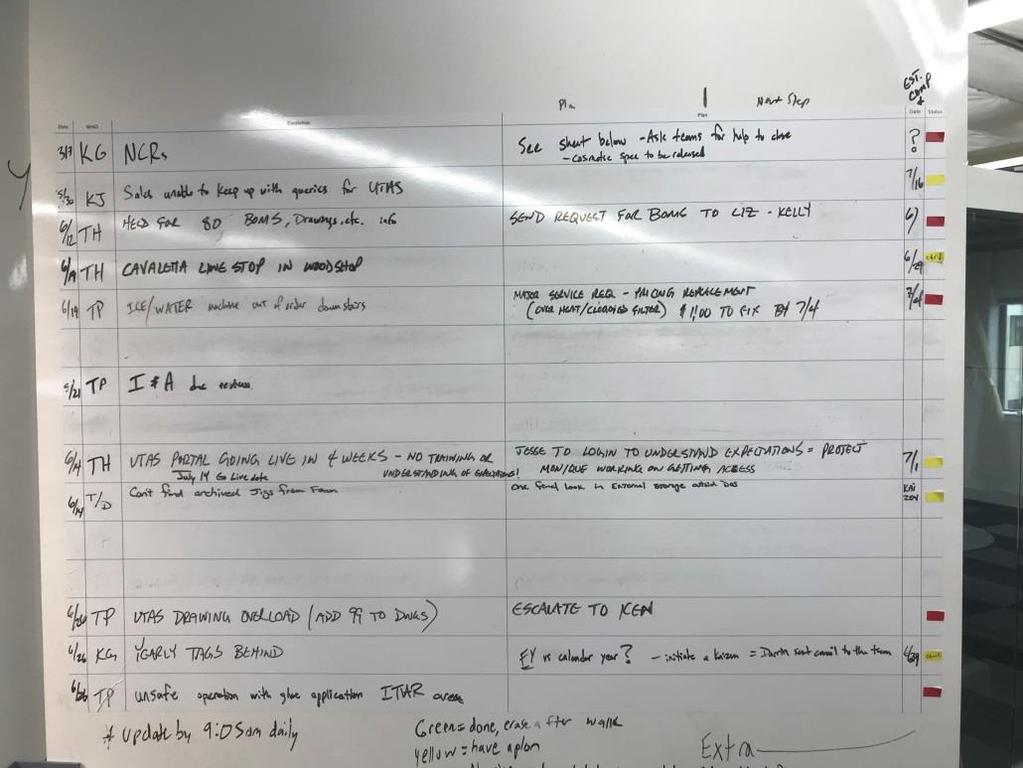 EST. COMP
Plan Next Step
Date WHO Escalation Plan Date Status
3/7 KG NCRs See sheet below - Ask teams for help to close ?
- cosmetic spec to be released
5/30 KJ Sales unable to keep up with queries for UTAS 7/16
6/12 TH HELD FOR 80 BOMS, Drawings, etc. info SEND REQUEST FOR BOMS TO LIZ - KELLY 6/
6/9 TH CAVALETTA LINE STOP IN WOODSHOP 6/29
6/19 TP ICE/WATER machine out of order downstairs MAJOR SERVICE REQ - PRICING REPLACEMENT 7/4
(OVER HEAT/CLOGGED FILTER) TO FIX BY 7/4
5/21 TP I & A
6/14 TH UTAS PORTAL GOING LIVE IN 4 WEEKS - NO TRAINING OR JESSE TO LOGIN TO UNDERSTAND EXPECTATIONS = PROTECT 7/1
July 14 Go Live date UNDERSTANDING OF MONIQUE WORKING ON GETTING ACCESS
6/14 T/D Can't find archived Jigs from One final look in External storage outside
6/26 TP UTAS DRAWING OVERLOAD (ADD 99 TO DWGS) ESCALATE TO KEN
6/26 KG YEARLY TAGS BEHIND FY vs calendar year? - initiate a kaizen = sent email to the team 6/29
6/26 TP unsafe operation with glue application ITAR area
* update by 9:05am daily
Green = done, erase after walk
yellow = have a plan
Extra